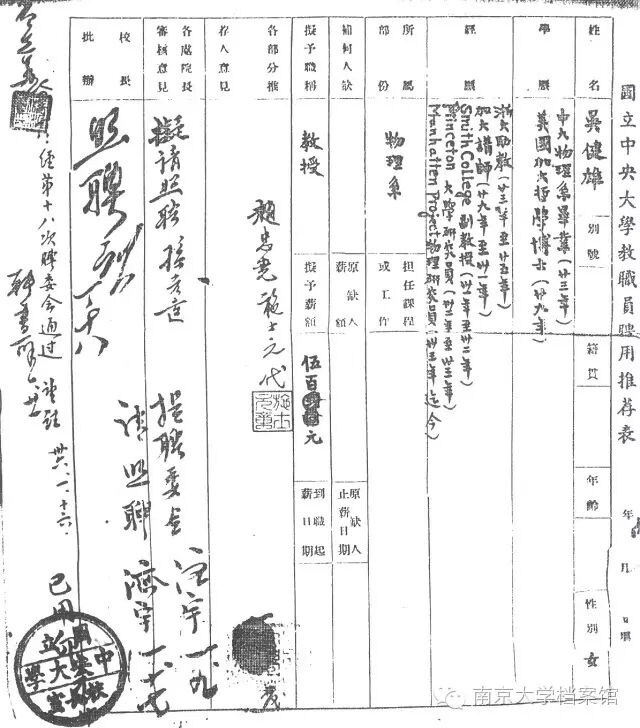 國立中央大學教職員聘用推荐表
年 月 日填
姓名 吳健雄
別號
籍貫
年齡
性別 女
學歷
中大物理系畢業(廿三年)
美國加大哲學博士(廿九年)
經歷
浙大助教(廿三年至廿五年)
加大講師(廿九年至卅一年)
Smith College 副教授(卅一年至卅二年)
Princeton 大學研究員(卅二年至卅三年)
Manhatten Project 物理研究員(卅三年迄今)
所屬部份 物理系
担任課程或工作
補何人缺
原缺人薪額
原缺人止薪日期
擬予職稱 教授
擬予薪額 伍百元
到職起薪日期
各部分推荐人意見
趙忠堯 施士元代
各處院長審核意見
擬請照聘
提聘委会
校長批辦
照聘
請照聘
經第十八次聘委会通過
卅六.一.十六.
已用
南京大学档案馆